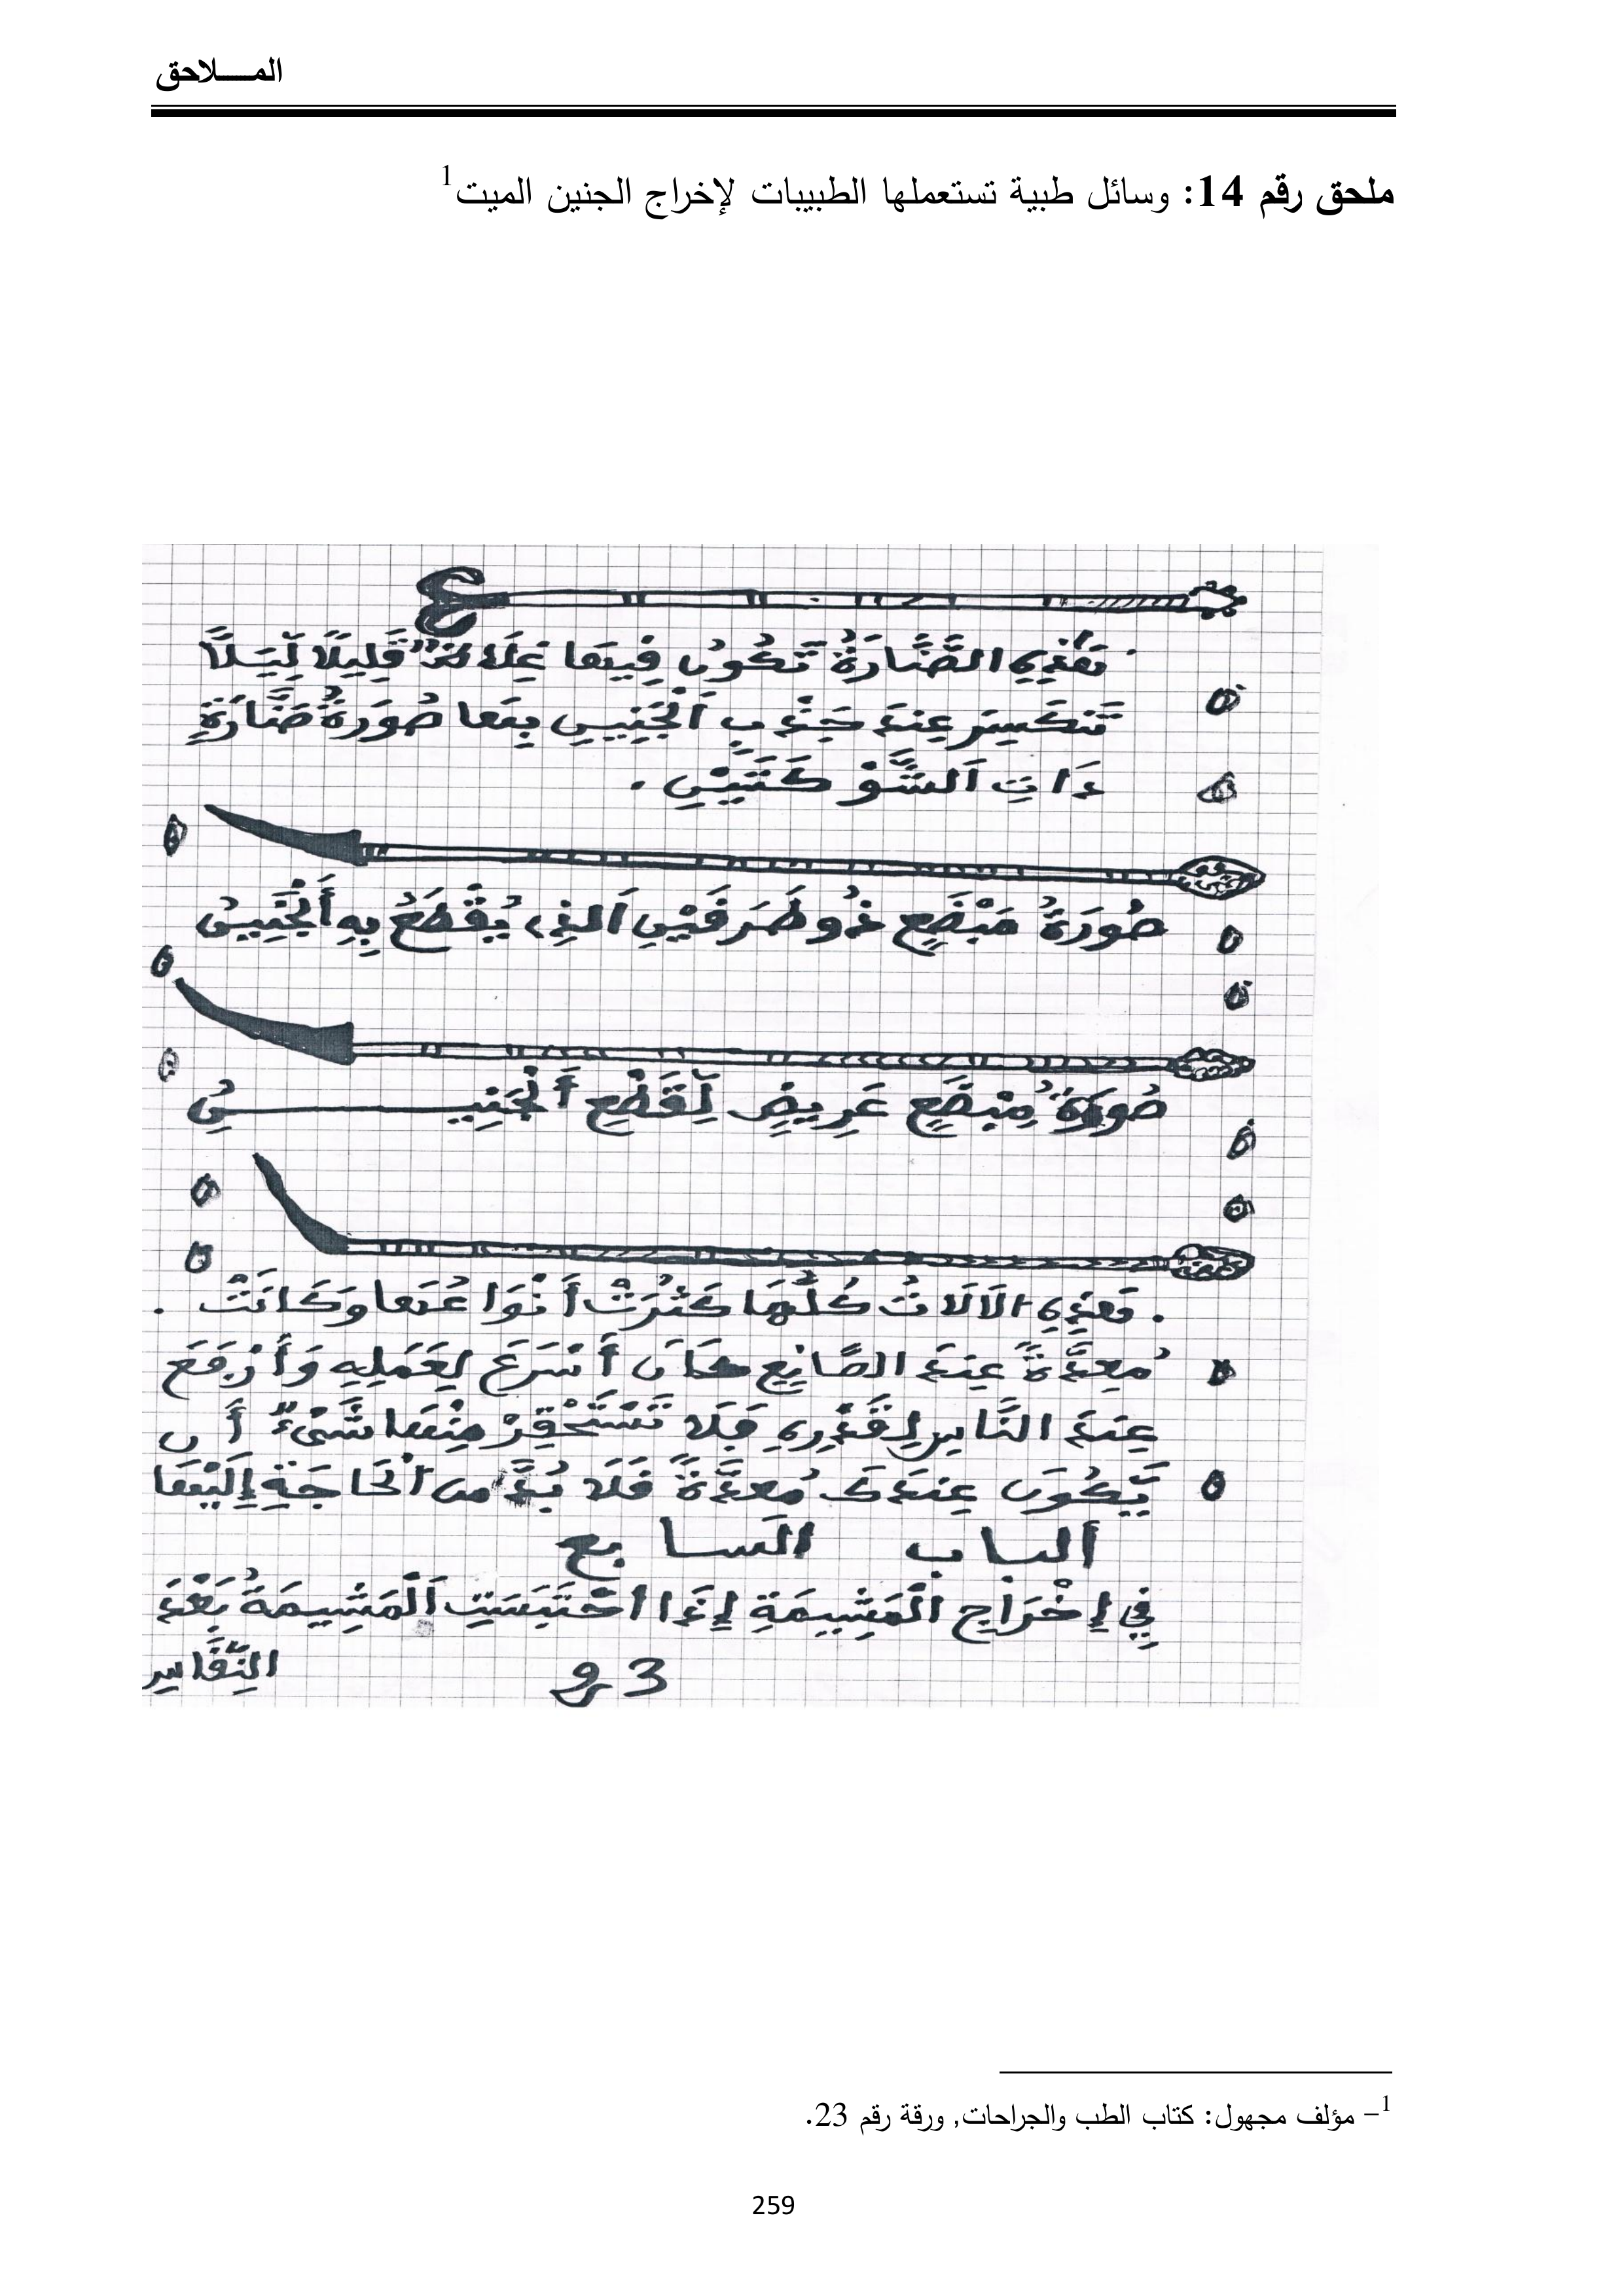 المـــــلاحق
ملحق رقم 14: وسائل طبية تستعملها الطبيبات لإخراج الجنين الميت1
فَهَذِهِ الصَّنَّارَةُ تَكُونُ فِيهَا قَلِيلًا لِّيَلَّا
تَنكَسِرَ عِندَ جَذْبِ اَلْجَنِينِ بِهَا صُورَةُ صَنَّارَةٍ
ذَاتِ اَلشَّوْكَتَيْنِ .
صُورَةُ مَبْضَعٍ ذُو طَرَفَيْنِ اَلذِي يُقْطَعُ بِهِ اَلْجَنِينُ
صُورَةُ مِبْضَعٍ عَرِيضٍ لِقَطْعِ اَلْجَنِيـــــنِ
. فَهَذِهِ الَالَاتُ كُلُّهَا كَثُرَتْ أَنْوَاعُهَا وَكَانَتْ .
مُعِدَّةً عِندَ الصَّانِعِ كَانَ أَسْرَعَ لِعَمَلِهِ وَأَرْفَعَ
عِندَ النَّاسِ لِقَدْرِهِ فَلَا تَسْتَحْقِرْ مِنْهَا شَيْءٌ أَن
يَّكُونَ عِندَكَ مُعدَّةً فَلَا بُدَّ مِن اَلْحَاجَةِ إِلَيْهَا
اَلباب السابع
فِي إِخْرَاجِ الْمَشِيمَةِ إِذَا احْتَبَسَتِ اَلْمَشِيمَةُ بَعْدَ
النِّفَاسِ
و 3
1– مؤلف مجهول: كتاب الطب والجراحات, ورقة رقم 23.
259